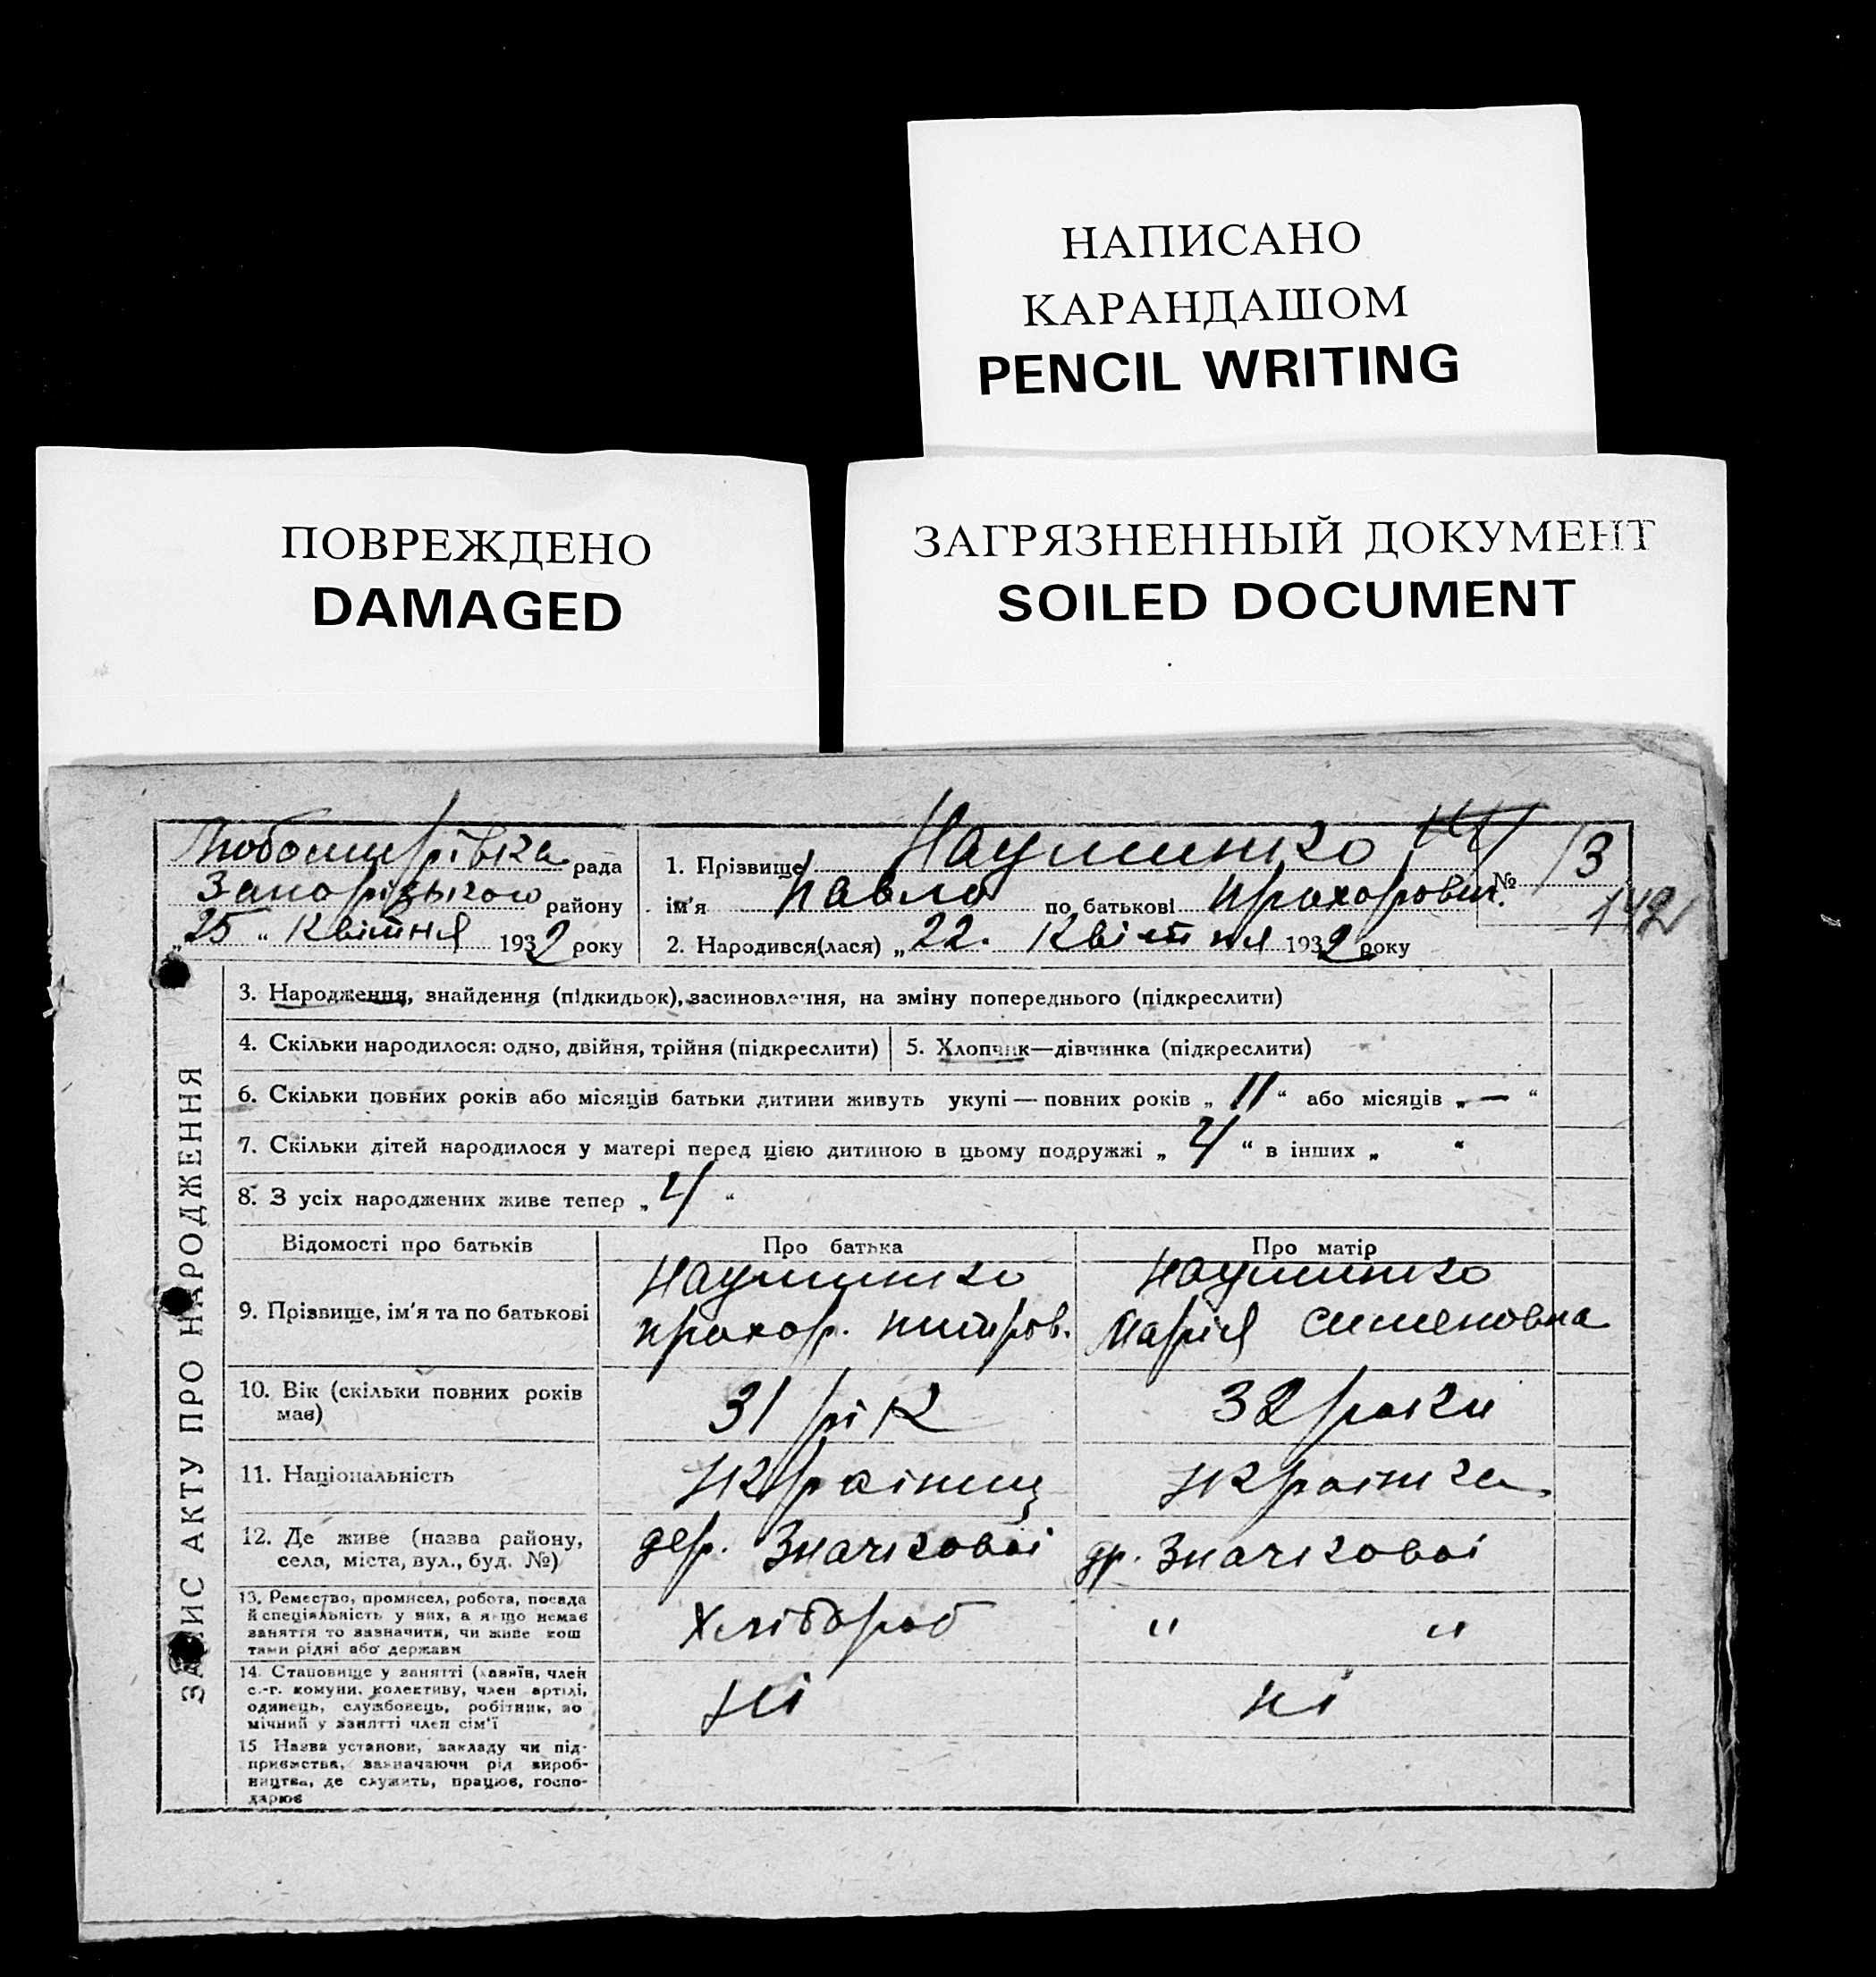 НАПИСАНО
КАРАНДАШОМ
PENCIL WRITING
ПОВРЕЖДЕНО
DAMAGED
ЗАГРЯЗНЕННЫЙ ДОКУМЕНТ
SOILED DOCUMENT
Любомирівка рада
Запорізького району
„25 “ Квітня 1932 року
1. Прізвище Науминко
ім'я Павло по батькові Прохорович.
2. Народився(лася) „22. Квітня 1932 року
№ 13
142
ЗАПИС АКТУ ПРО НАРОДЖЕННЯ
3. Народження, знайдення (підкидьок), засиновлення, на зміну попереднього (підкреслити)
4. Скільки народилося: одно, двійня, трійня (підкреслити)
5. Хлопчик—дівчинка (підкреслити)
6. Скільки повних років або місяців батьки дитини живуть укупі — повних років „ 11 “ або місяців „ — “
7. Скільки дітей народилося у матері перед цією дитиною в цьому подружжі „ 4 “ в інших „ “
8. З усіх народжених живе тепер „ 4 “
Відомості про батьків
Про батька
Про матір
9. Прізвище, ім'я та по батькові
Науминко
прохор. питров.
Науминко
Марія Сименовна
10. Вік (скільки повних років
має)
31 рік
32 роки
11. Національність
Українец
Украінка
12. Де живе (назва району,
села, міста, вул., буд. №)
дер. Значковоі
др. Значковоі
13. Ремество, промисел, робота, посада
й спеціяльність у них, а якщо немає
заняття то зазначити, чи живе кош
тами рідні або держави
Хлібороб
" "
14. Становище у занятті (хазяїн, член
с.-г. комуни, колективу, член артілі,
одинець, службовець, робітник, по
мічний у занятті член сім'ї
ні
ні
15 Назва установи, закладу чи під-
приємства, зазначаючи рід вироб-
ництва, де служить, працює, госпо-
дарює